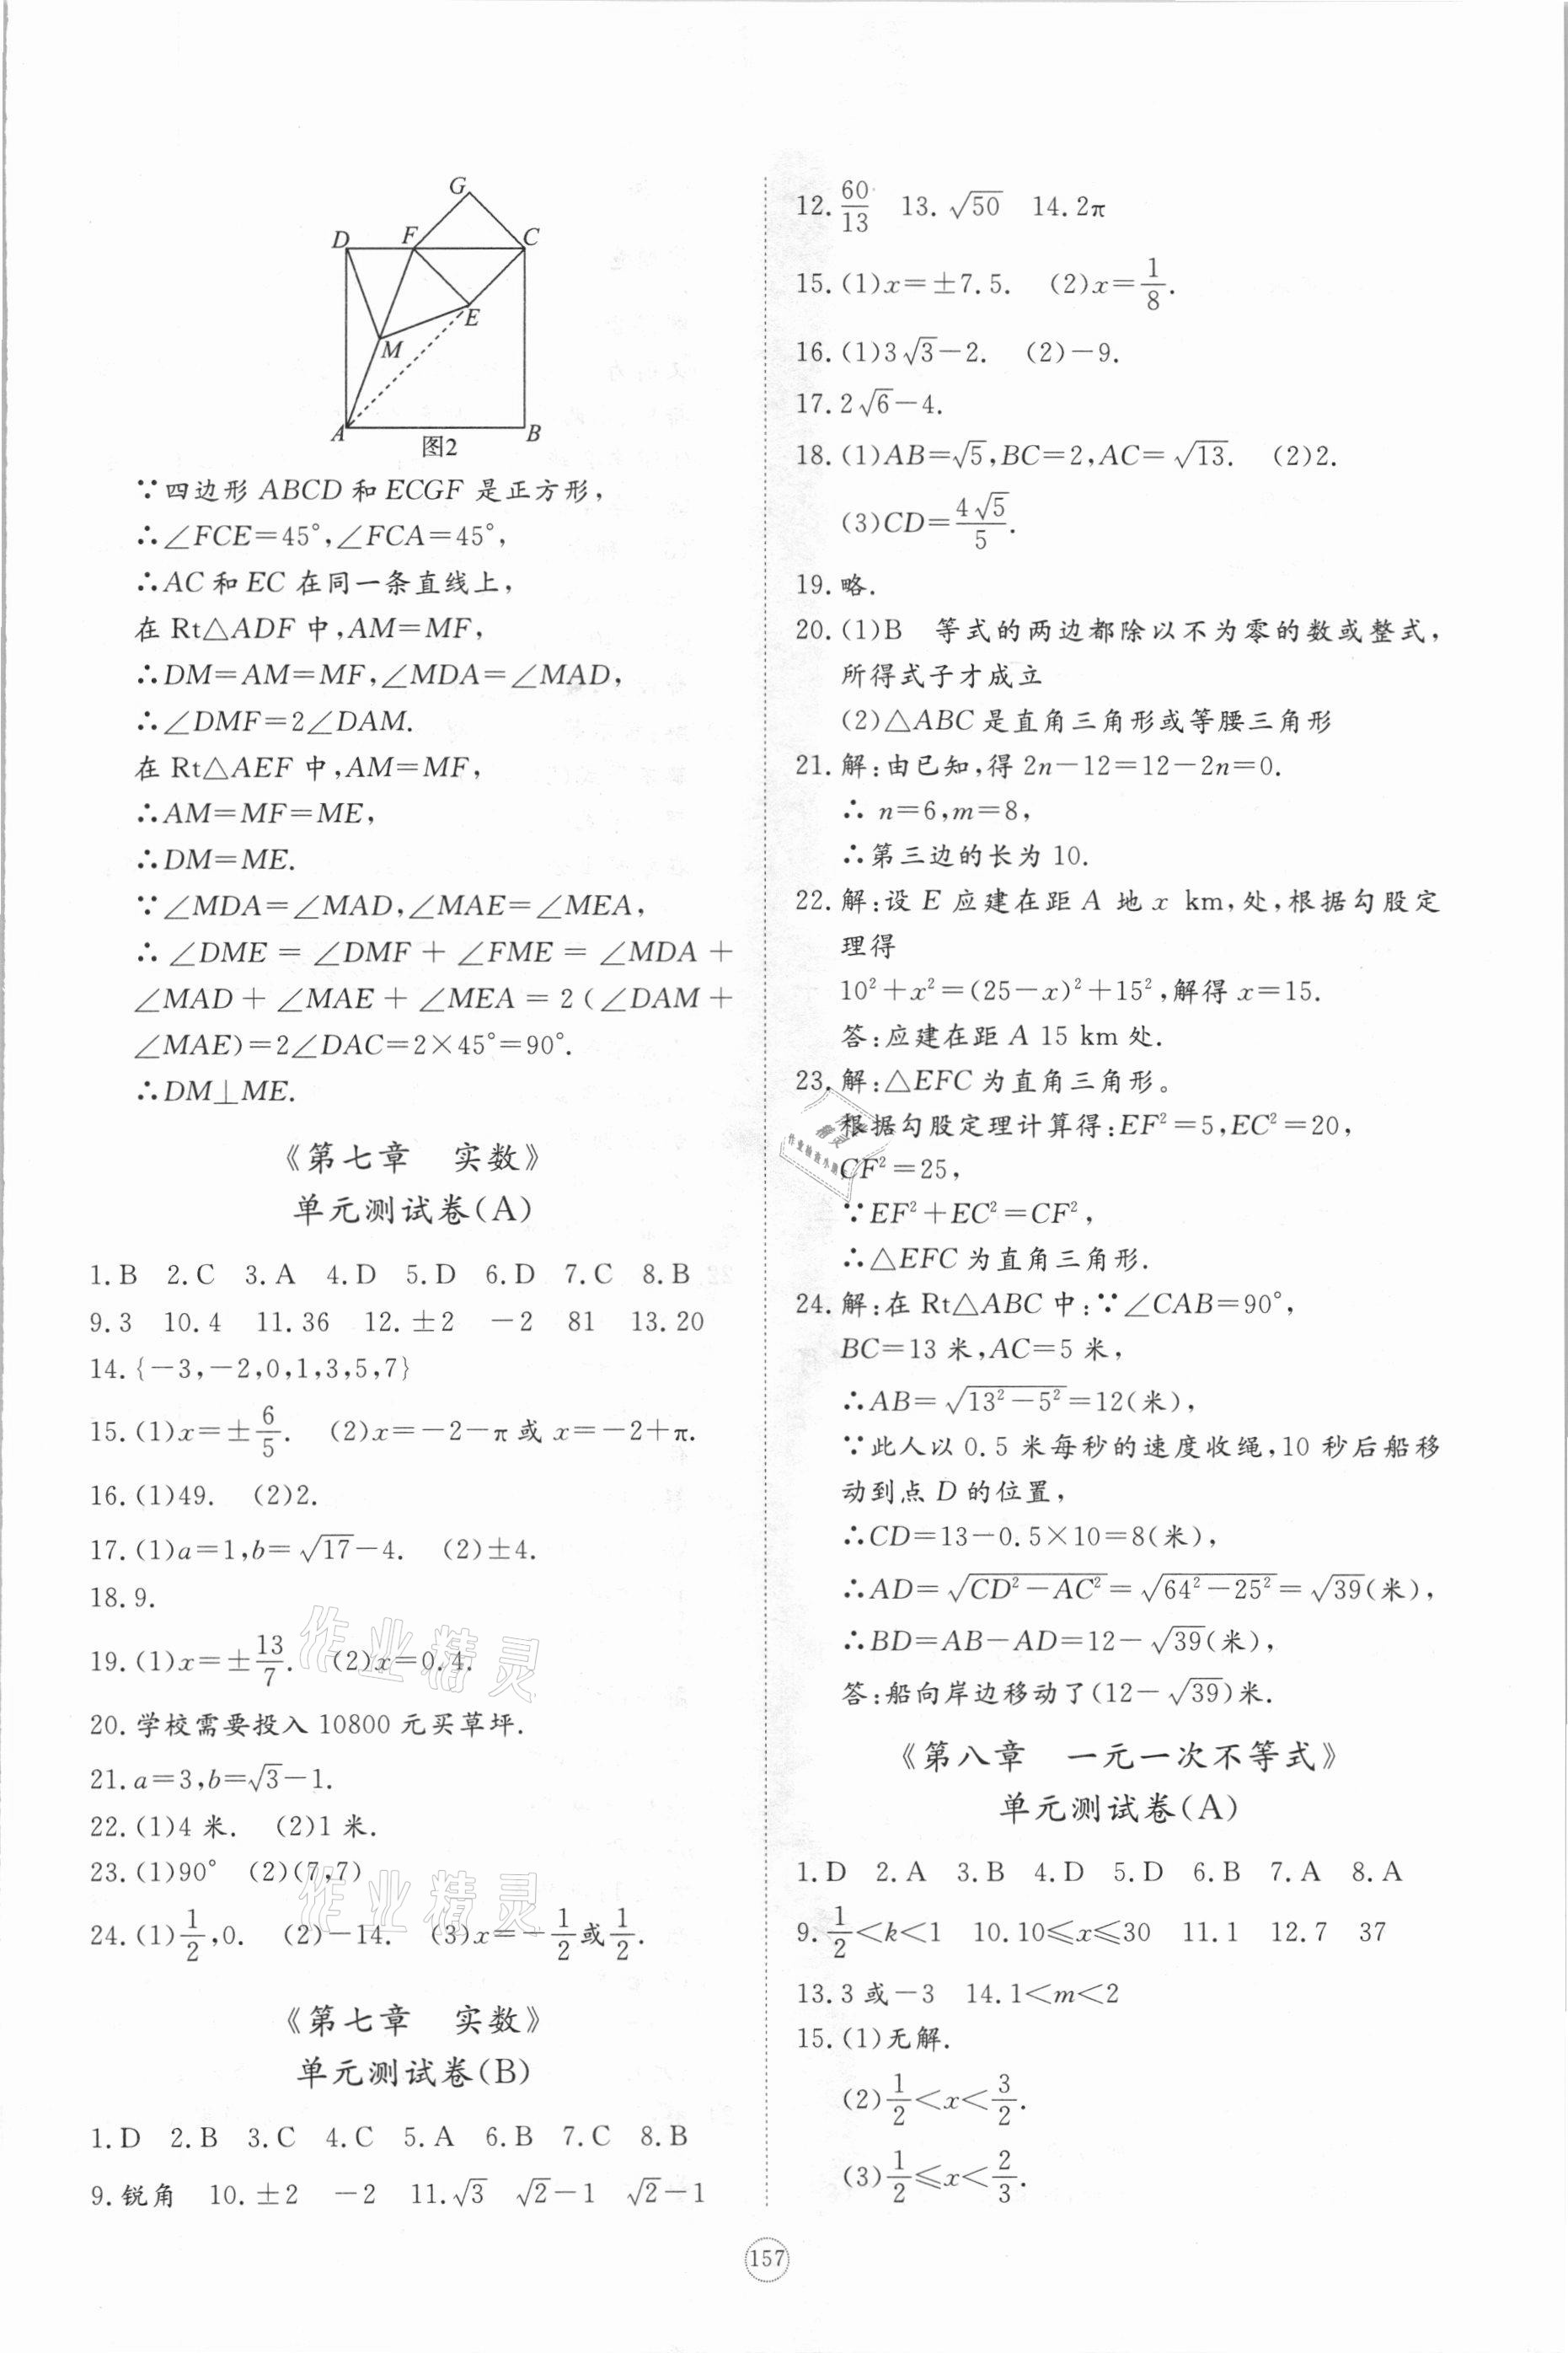 G
D F C
E
M
A B
图2
∵四边形 ABCD 和 ECGF 是正方形,
∴∠FCE=45°,∠FCA=45°,
∴AC 和 EC 在同一条直线上,
在 Rt△ADF 中,AM=MF,
∴DM=AM=MF,∠MDA=∠MAD,
∴∠DMF=2∠DAM.
在 Rt△AEF 中,AM=MF,
∴AM=MF=ME,
∴DM=ME.
∵∠MDA=∠MAD,∠MAE=∠MEA,
∴∠DME = ∠DMF + ∠FME = ∠MDA +
∠MAD + ∠MAE + ∠MEA = 2 (∠DAM +
∠MAE)=2∠DAC=2×45°=90°.
∴DM⊥ME.
《第七章 实数》
单元测试卷(A)
1.B 2.C 3.A 4.D 5.D 6.D 7.C 8.B
9.3 10.4 11.36 12.±2 −2 81 13.20
14.{−3,−2,0,1,3,5,7}
15.(1)x=±6/5. (2)x=−2−π或 x=−2+π.
16.(1)49. (2)2.
17.(1)a=1,b=√17−4. (2)±4.
18.9.
19.(1)x=±13/7. (2)x=0.4.
20.学校需要投入 10800 元买草坪.
21.a=3,b=√3−1.
22.(1)4 米. (2)1 米.
23.(1)90° (2)(7,7)
24.(1)1/2,0. (2)−14. (3)x=−1/2或1/2.
《第七章 实数》
单元测试卷(B)
1.D 2.B 3.C 4.C 5.A 6.B 7.C 8.B
9.锐角 10.±2 −2 11.√3 √2−1 √2−1
12.60/13 13.√50 14.2π
15.(1)x=±7.5. (2)x=1/8.
16.(1)3√3−2. (2)−9.
17.2√6−4.
18.(1)AB=√5,BC=2,AC=√13. (2)2.
(3)CD=4√5/5.
19.略.
20.(1)B 等式的两边都除以不为零的数或整式,
所得式子才成立
(2)△ABC 是直角三角形或等腰三角形
21.解:由已知,得 2n−12=12−2n=0.
∴ n=6,m=8,
∴第三边的长为 10.
22.解:设 E 应建在距 A 地 x km,处,根据勾股定
理得
10²+x²=(25−x)²+15²,解得 x=15.
答:应建在距 A 15 km 处.
23.解:△EFC 为直角三角形。
根据勾股定理计算得:EF²=5,EC²=20,
CF²=25,
∵EF²+EC²=CF²,
∴△EFC 为直角三角形.
24.解:在 Rt△ABC 中:∵∠CAB=90°,
BC=13 米,AC=5 米,
∴AB=√(13²−5²)=12(米),
∵此人以 0.5 米每秒的速度收绳,10 秒后船移
动到点 D 的位置,
∴CD=13−0.5×10=8(米),
∴AD=√(CD²−AC²)=√(64²−25²)=√39(米),
∴BD=AB−AD=12−√39(米),
答:船向岸边移动了(12−√39)米.
《第八章 一元一次不等式》
单元测试卷(A)
1.D 2.A 3.B 4.D 5.D 6.B 7.A 8.A
9.1/2<k<1 10.10⩽x⩽30 11.1 12.7 37
13.3 或−3 14.1<m<2
15.(1)无解.
(2)1/2<x<3/2.
(3)1/2⩽x<2/3.
157
作业精灵
作业精灵